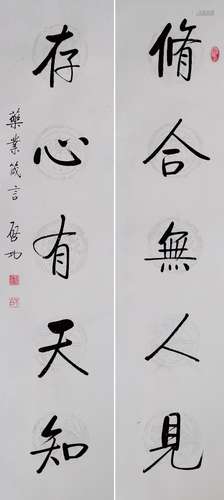 脩合無人見
存心有天知
藥業箴言
啓功